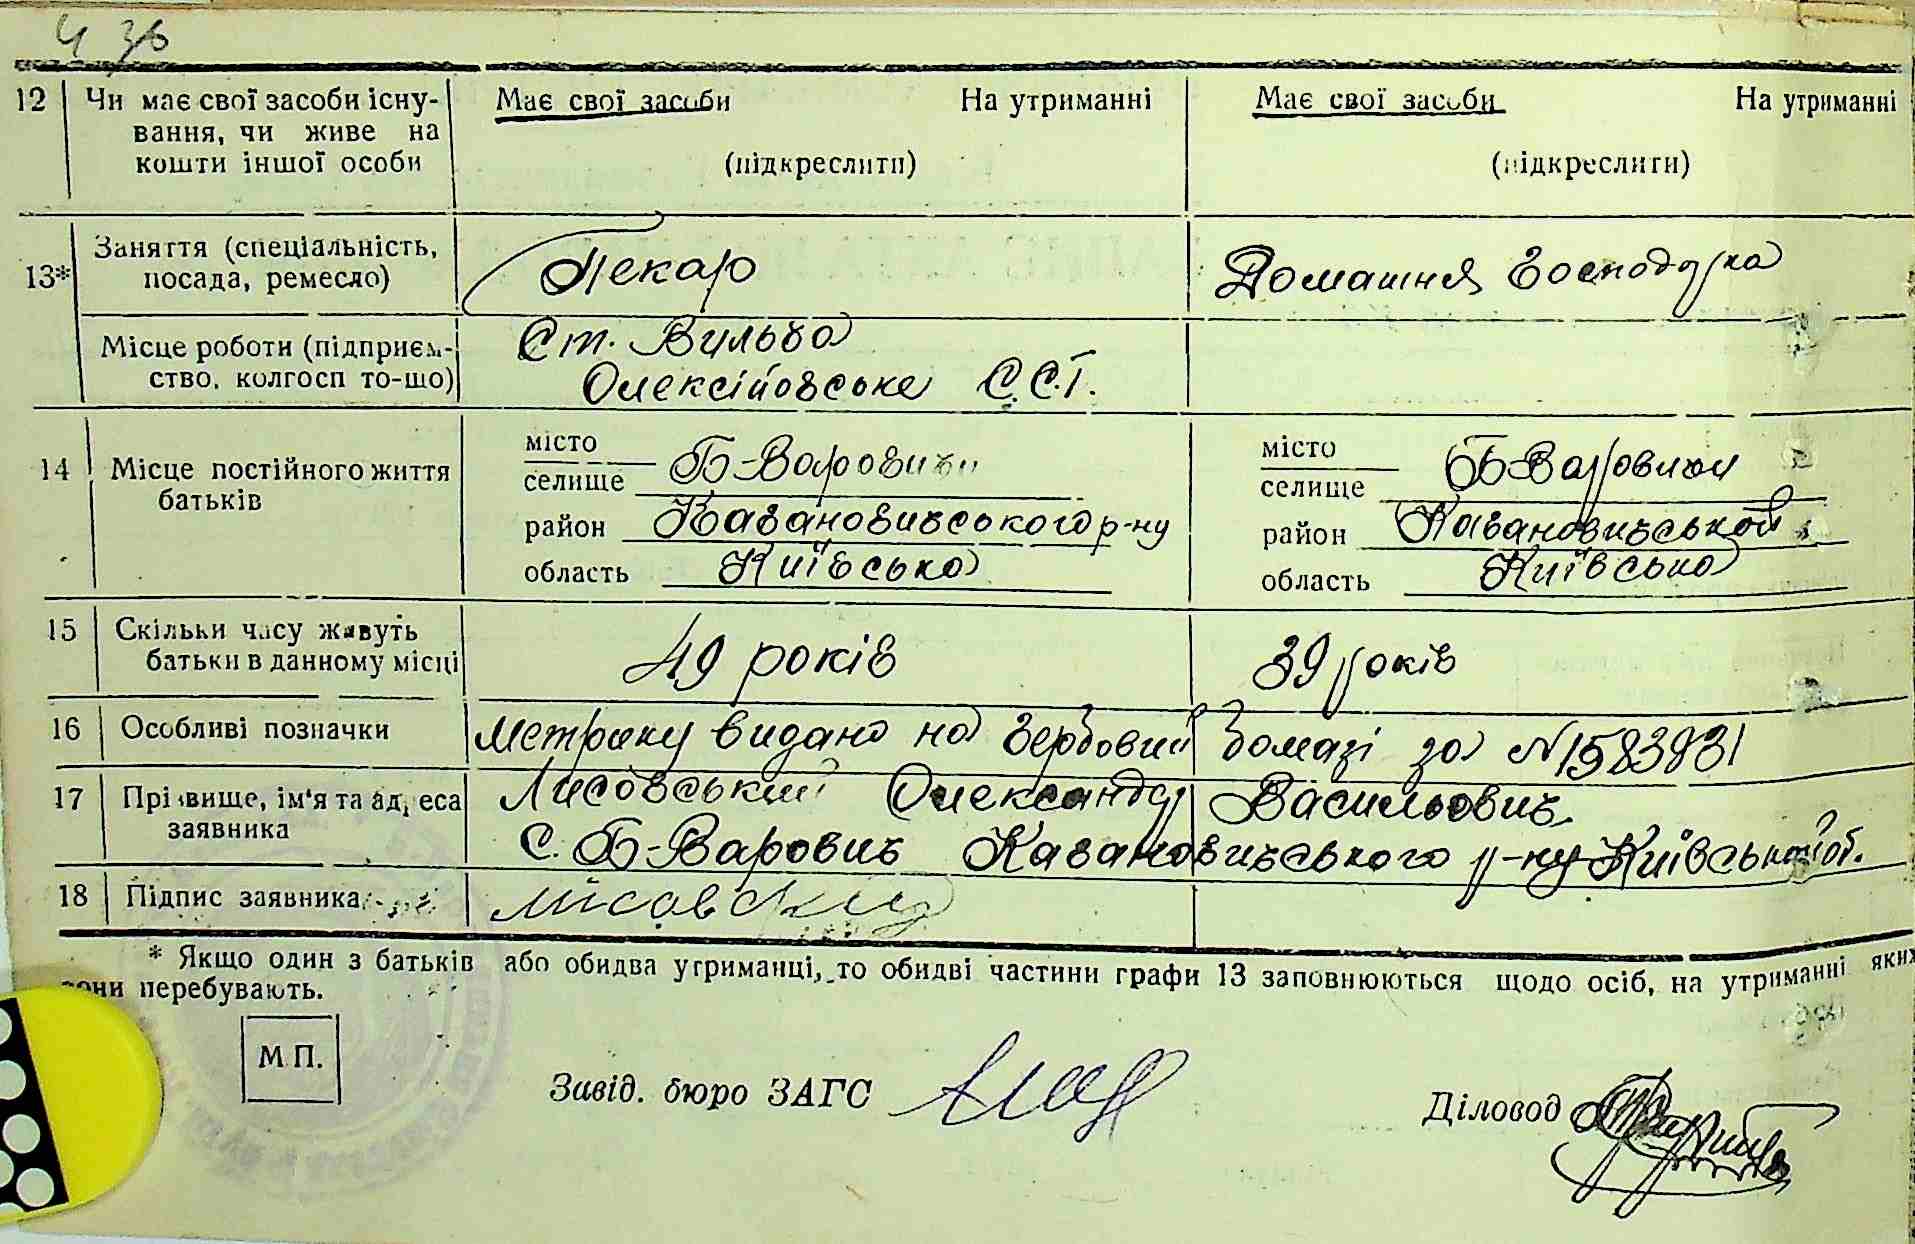 Ч 36
12 Чи має свої засоби існу- Має свої засоби На утриманні Має свої засоби На утриманні
вання, чи живе на
кошти іншої особи (підкреслити) (підкреслити)
13* Заняття (спеціальність, Пекар Домашня Господарка
посада, ремесло)
Місце роботи (підприєм- Ст. Вильча
ство, колгосп то-що) Олексійовське С.С.Т.
14 Місце постійного життя місто Б-Варовичи місто Б-Варовичи
батьків селище селище
район Кагановичського р-ну район Кагановичської
область Київська область Київська
15 Скільки часу живуть 49 років 39 років
батьки в данному місці
16 Особливі позначки Метрику видано на Гербовий Бомазі за N1583831
17 Прізвище, ім'я та адреса Лисовський Олександр Васильович
заявника С. Б-Варович Кагановичського р-ну Київської об.
18 Підпис заявника
* Якщо один з батьків або обидва утриманці, то обидві частини графи 13 заповнюються щодо осіб, на утриманні яких
вони перебувають.
М.П.
Завід. бюро ЗАГС Діловод